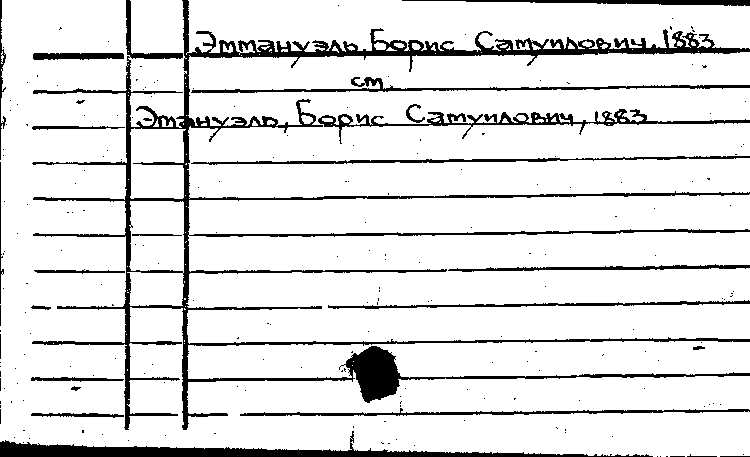 Эммануэль, Борис Самуилович, 1883
см.
Эмануэль, Борис Самуилович, 1883